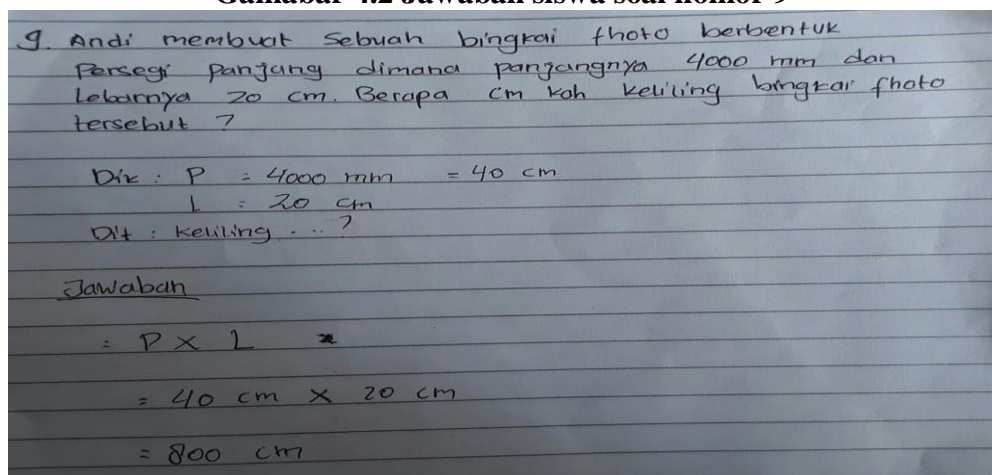 Gambabar 4.2 Jawaban siswa soal nomor 9
9. Andi membuat sebuah bingkai fhoto berbentuk
Persegi panjang dimana panjangnya 4000 mm dan
Lebarnya 20 cm. Berapa cm kah keliling bingkai fhoto
tersebut ?
Dik : P = 4000 mm = 40 cm
L = 20 cm
Dit : Keliling ... ?
Jawaban
= P X L
= 40 cm X 20 cm
= 800 cm